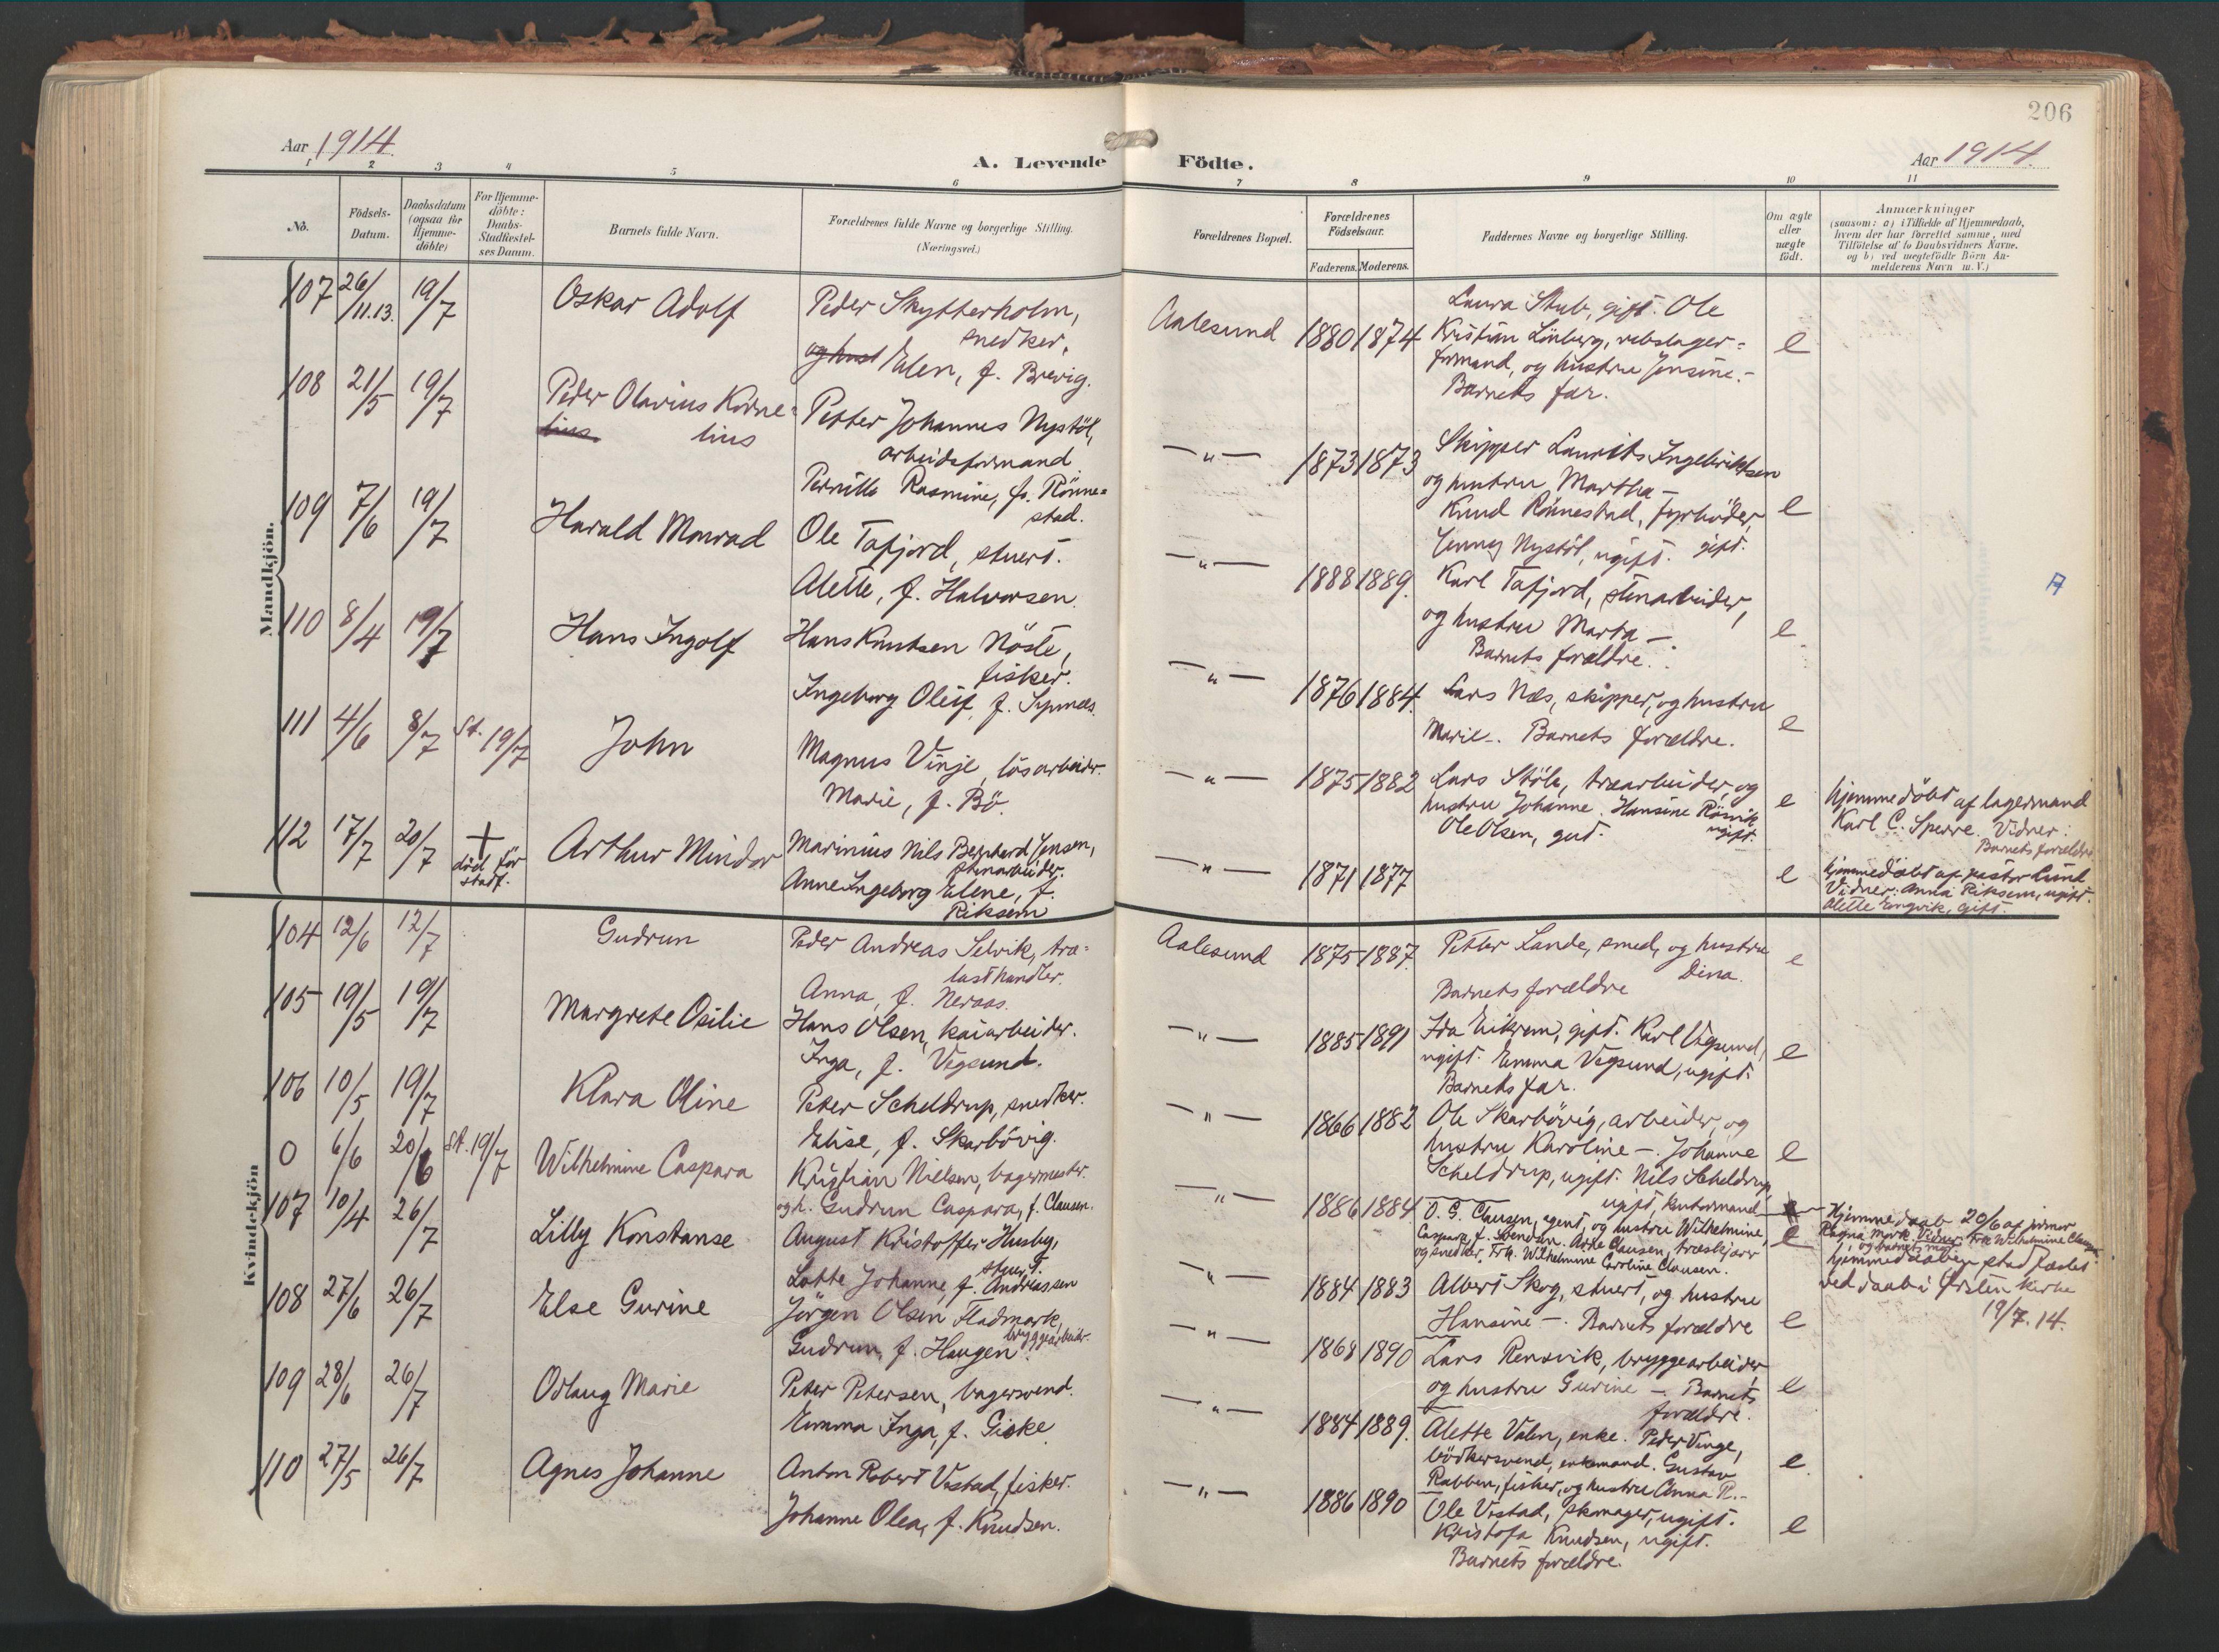 206
Aar 1914.
A. Levende Födte.
Aar 1914.
1 2 3 4 5 6 7 8 9 10 11
No.
Födsels-
Datum.
Daabsdatum
(ogsaa for
Hjemme-
döbte)
For Hjemme-
döbte:
Daabs-
Stadfæstel-
ses Datum.
Barnets fulde Navn.
Forældrenes fulde Navne og borgerlige Stilling.
(Næringsvei.)
Forældrenes Bopæl.
Forældrenes
Födselsaar.
Faderens. Moderens.
Faddernes Navne og borgerlige Stilling.
Om ægte
eller
uægte
födt.
Anmærkninger
(saasom: a) i Tilfælde af Hjemmedaab,
hvem der har forrettet samme, med
Tilföielse af to Daabsvidners Navne.
og b) ved uegtefödte Börn An-
melderens Navn m. V.)
Mandkjön.
107 26/11.13. 19/7 Oskar Adolf
Peder Skytterholm,
snedker,
og hust Elen, f. Brevig.
Aalesund 1880 1874
Laura Stub, gift. Ole
Kristian Lönberg, rebslager-
formand, og hustru Jensine.-
Barnets far.
e
108 21/5 19/7 Peder Olavius Korne-
lius lius
Petter Johannes Nystöl,
arbeidsformand
Pernille Rasmine, f. Rönne-
stad.
—"— 1873 1873
Skipper Laurits Ingebriktsen
og hustru Martha —
Knud Rönnestad, fyrböder,
gift.
Jenny Nystöl, ugift.
e
109 7/6 19/7 Harald Monrad
Ole Tafjord, stuert.
Alette, f. Halvorsen.
—"— 1888 1889.
Karl Tafjord, stenarbeider,
og hustru Marta —
Barnets forældre.
e
A
110 8/4 19/7 Hans Ingolf
Hans Knutsen Nöste,
fisker.
Ingeborg Oleif, f. Synnes.
—"— 1876 1884.
Lars Næs, skipper, og hustru
Marie-. Barnets forældre.
e
111 4/6 8/7 St. 19/7 John
Magnus Vinje, lösarbeider.
Marie, f. Bö.
—"— 1875 1882
Lars Stöle, træarbeider, og
hustru Johanne. Hansine Rösvik
ugift.
Ole Olsen, gut.
e
hjemmedöbt af lagermand
Karl C. Sperre. Vidner:
Barnets forældre
112 17/7 20/7 +
död för
stadf.
Arthur Mindor
Marinius Nils Bernhard Jensen,
stenarbeider.
Anne Ingeborg Elene, f.
Riksem
—"— 1871 1877
e
hjemmedöbt af pastor Lund
Vidner: Anna Riksem, ugift.
Alette Engvik, gift.
Kvindekjön
104 12/6 12/7 Gudrun
Peder Andreas Selvik, træ-
lasthandler.
Anna, f. Neraas.
Aalesund 1875 1887.
Petter Lande, smed, og hustru
Dina.
Barnets forældre
e
105 19/5 19/7 Margrete Otilie
Hans Olsen, kaiarbeider.
Inga, f. Vegsund.
—"— 1885 1891
Ida Eikrem, gift. Karl Vegsund,
ugift. Emma Vegsund, ugift.
Barnets far.
e
106 10/5 19/7 Klara Oline
Peter Scheldrup, snedker.
Elise, f. Skarbövig.
—"— 1866 1882
Ole Skarbövig, arbeider, og
hustru Karoline —. Johanne
Scheldrup, ugift. Nils Scheldrup
ugift, kontormand
e
0 6/6 20/6 St. 19/7 Wilhelmine Caspara
Kristian Nielsen, bagermester.
og h. Gudrun Caspara, f. Clausen.
—"— 1886 1884
O. G. Clausen, agent, og hustru Wilhelmine
Caspara, f. Svendsen. Arne Clausen, træskjærer
og snedker, Frk. Wilhelmine Caroline Clausen.
e
Hjemmedaab 20/6 af jormor
Ragna Mork. Vidner: Frk Wilhelmine Clausen
og barnets mor.
hjemmedaaben stadfæstet
ved daab i Örsten kirke
19/7.14.
107 10/4 26/7 Lilly Konstanse
August Kristoffer Husby,
stuert.
Lotte Johanne, f. Andreassen
—"— 1884 1883
Albert Skog, stuert, og hustru
Hansine —. Barnets forældre
e
108 27/6 26/7 Else Gurine
Jörgen Olsen Fladmark,
bryggearbeider.
Gudrun, f. Haugen.
—"— 1868 1890
Lars Rensvik, bryggearbeider,
og hustru Gurine —. Barnets
forældre.
e
109 28/6 26/7 Odlaug Marie
Peter Petersen, bagersvend.
Emma Inga, f. Giske
—"— 1884 1889.
Alette Valen, enke. Peder Vinge,
bödkersvend, enkemand. Gustav
Rabben, fisker, og hustru Anna R.-
e
110 27/5 26/7 Agnes Johanne
Anton Robert Vestad, fisker.
Johanne Olea, f. Knudsen.
—"— 1886 1890
Ole Vestad, skomager, ugift.
Kristofa Knudsen, ugift.
Barnets forældre.
e